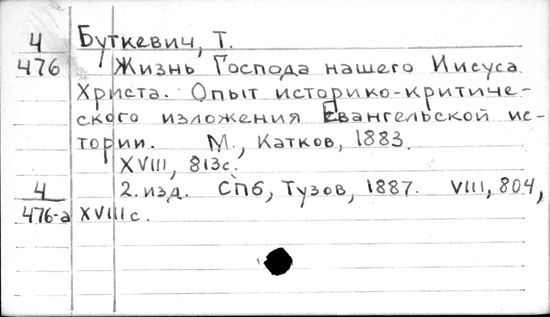 4 Буткевич, Т.
476 Жизнь Господа нашего Иисуса
Христа. Опыт историко-критиче-
ского изложения Евангельской ис-
тории. М., Катков, 1883.
XVIII, 813с.
4 2.изд. СПб, Тузов, 1887. VIII, 804,
476-а XVIIIс.